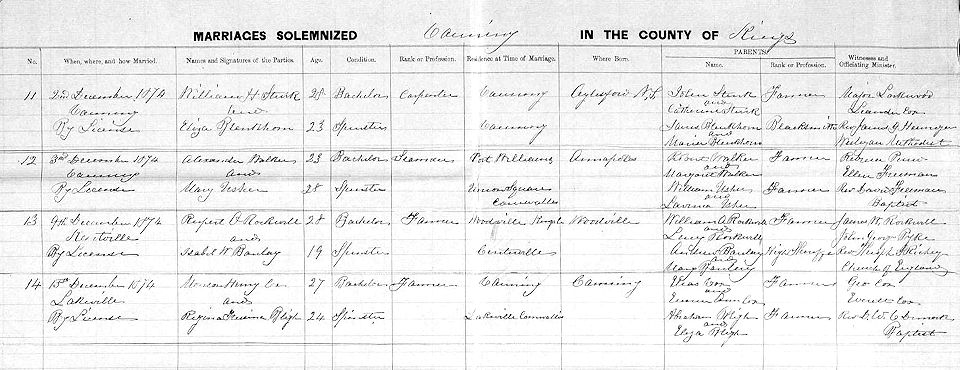 MARRIAGES SOLEMNIZED Canning IN THE COUNTY OF Kings
PARENTS
No. When, where, and how Married. Names and Signatures of the Parties. Age. Condition. Rank or Profession. Residence at Time of Marriage. Where Born. Name. Rank or Profession. Witnesses and Officiating Minister.
11 2nd December 1874 William H Sturk 28 Bachelor Carpenter Canning Aylesford N.S. John Sturk Farmer Major Lockwood
Canning and and Leander Cox
Catherine Sturk
By License Eliza Blenkhorn 23 Spinster Canning Blenkhorn Blacksmith Rev James
and Wesleyan Methodist
Blenkhorn
12 3rd December 1874 Alexander Walker 23 Bachelor Seaman Port Williams Annapolis Robert Walker Farmer Rebecca
Canning and and Ellen Freeman
Margaret Walker
By License Mary 28 Spinster Union Square William Farmer Rev David Freeman
Cornwallis and Baptist
Lavinia
13 9th December 1874 Rupert Rockwell 28 Bachelor Farmer Woodville Kings Woodville William A Rockwell Farmer James W. Rockwell
Kentville and and John George Pyke
Lucy Rockwell
By License Isabel W Barclay 19 Spinster Centreville Andrew Barclay High Sheriff Rev Joseph Richey
and Church of England
Mary Barclay
14 15th December 1874 Henry Cox 27 Bachelor Farmer Canning Canning Cox Farmer Geo Cox
Lakeville and and Everett Cox
Emma Ann Cox
By License Regina Bligh 24 Spinster Lakeville Cornwallis Abraham Bligh Farmer Rev
and Baptist
Eliza Bligh